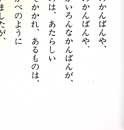 のかんばんや、
かんばんや、
いろんなかんばんが、
のは、あたらしい
でかかれ、あるものは、
かべのように
ましたが、